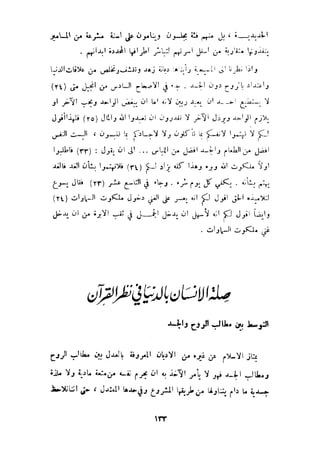 الحديـد ، بل فئة منهم يجلسون ويعلمون على ابنة عشرة من المسلمين
ينفذونها مقاربة من أجل أسرهم
واذا نظرنا الى
الاهتمام بالروح دون الجسد . جاء في الاصحاح السادس من انجيل متى (٢٤)
لا يستطيع أحد ان يعبد ربين لانه اما ان يبغض الواحد ويحب الآخر أو
يلازم الواحد ويرذل الآخر لا تقدرون ان تعبدوا الله والمال (٢٥) لهذا أقول
لكم لا تهتموا لأنفسكم بما تأكلون ولا لأجسادكم بما تلبسون ، أليست النفس
أفضل من الطعام والجسد أفضل من اللباس ... الى أن يقول : (٣٣) فاطلبوا
أولا ملكوت الله وبره وهذا كله يزاد لكم (٣٤) فلا تهتموا بشأن الغد فالغد
يهتم بشأنه . يكفي كل يوم شره . وجاء في التاسع عشر (٢٣) فقال يسوع
لتلاميذه الحق أقول لكم انه يعسر على الغني دخول ملكوت السموات (٢٤)
وأيضا أقول لكم انه لأسهل أن يدخل الجمل في ثقب الابرة من أن يدخل
غني ملكوت السموات .
صلة الانسان بالدنيا في نظر القرآن
التوسط بين مطالب الروح والجسد
يمتاز الاسلام عن غيره من الاديان المعروفة بالعدل بين مطالب الروح
ومطالب الجسد فهو لا يأمر الآخذ به أن يحرم نفسه من متعة مادية ولا لذة
جسدية ما دام يتناولها من طريقها المشروع وبحدها المعتدل ، حتى لاتنالنفسه
١٣٣